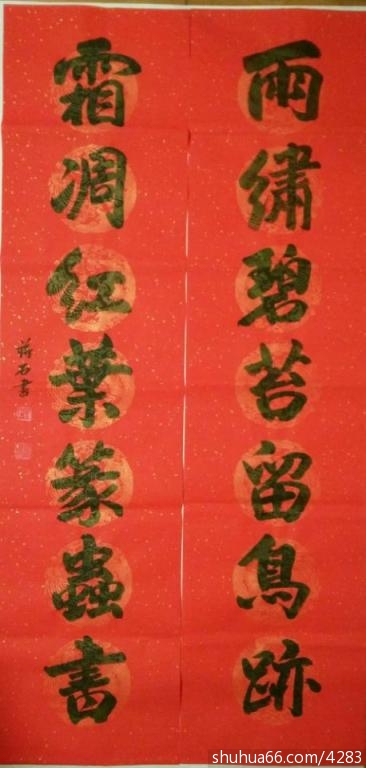 雨繡碧苔留鳥跡
霜凋紅葉篆蟲書
蔣石書
shuhua66.com/4283